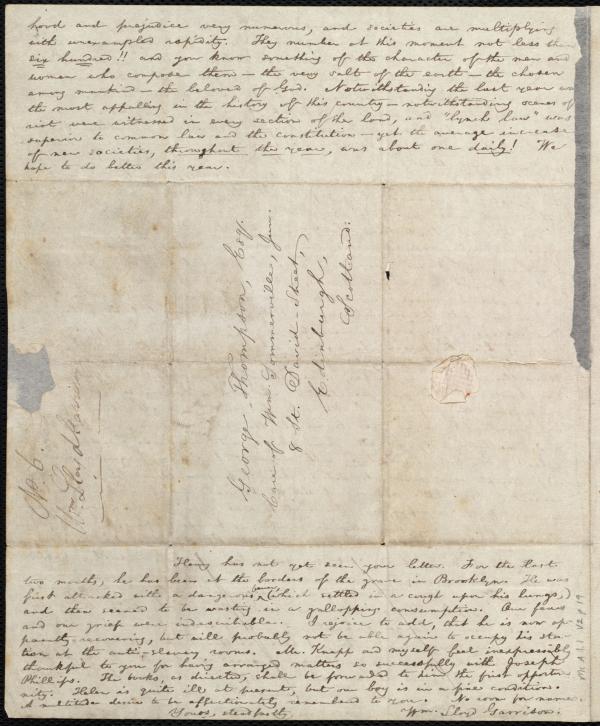 hood and prejudice very numerous, and societies are multiplying
with unexampled rapidity. They number at this moment not less than
six hundred!! and you know something of the character of the men and
women who compose them — the very salt of the earth — the chosen
among mankind — the beloved of God. Notwithstanding the last year was
the most appalling in the history of this country — notwithstanding scenes of
riot were witnessed in every section of the land, and "lynch law" was
superior to common law and the Constitution — yet the average increase
of new societies, throughout the year, was about one daily! We
hope to do better this year.
George Thompson, Esq.
Care of Wm. Sommerville, Jun.
8 St. David-Street,
Edinburgh,
Scotland.
No. 6.
Wm Lloyd Garrison
Henry has not yet seen your letter. For the last
two months, he has been at the borders of the grave in Brooklyn. He was
first attacked with a dangerous fever (which settled in a cough upon his lungs,)
and then seemed to be wasting in a gallopping consumption. Our fears
and our grief were indescribable. I rejoice to add, that he is now ap-
parently recovering, but will probably not be able again to occupy his sta-
tion at the anti-slavery rooms. Mr. Knapp and myself feel inexpressibly
thankful to you for having arranged matters so successfully with Joseph
Phillips. The books, as directed, shall be forwarded to him the first opportu-
nity. Helen is quite ill at present, but our boy is in a fine condition.
A multitude desire to be affectionately remembered to you. No room for names.
Yours, steadfastly,
Wm. Lloyd Garrison.